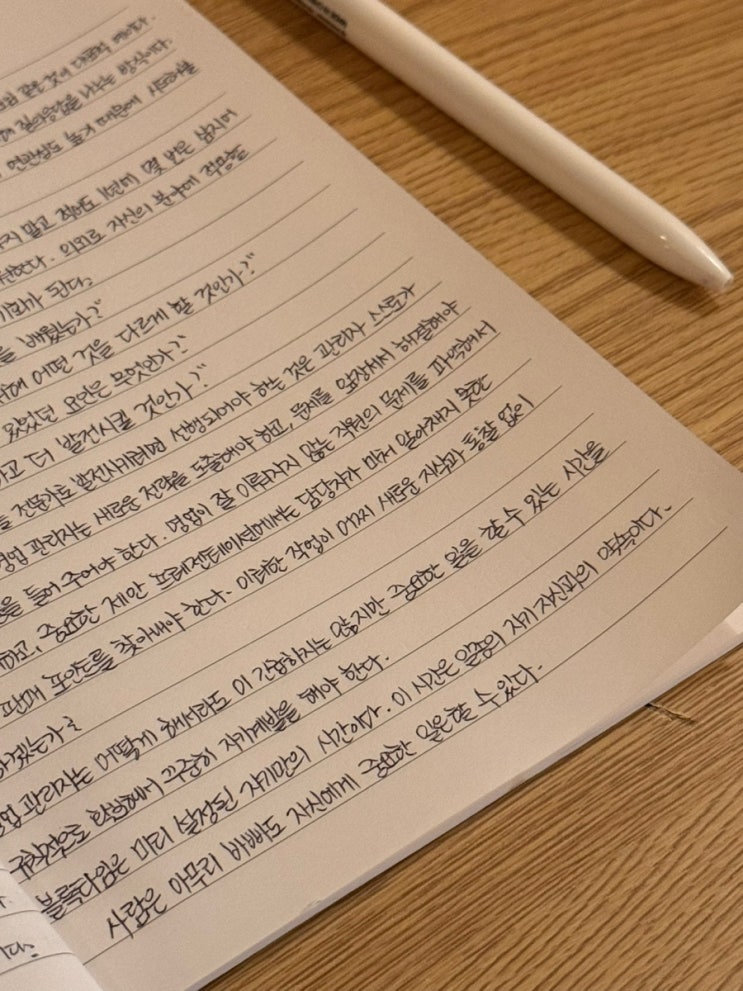 같은 것이 대표적 예이다.
질의응답을 나누는 방식이다.
연관성도 높기 때문에
말고 적어도 1년에 몇 번은 심지어
한다. 의외로 자신의 분야에 적용할
된다.
배웠는가?"
어떤 것을 다르게 할 것인가?"
있었던 요인은 무엇인가?
하고 더 발전시킬 것인가?"
전문가로 발전시키려면 선행되어야 하는 것은 관리자 스스로가
관리자는 새로운 전략을 도출해야 하고, 문제를 앞장서서 해결해야
들어 주어야 한다. 영업이 잘 이루어지지 않는 직원의 문제를 파악해서
하고, 중요한 제안 프레젠테이션에서는 담당자가 미처 알아채지 못한
판매 포인트를 찾아내야 한다. 이러한 작업이 어찌 새로운 지식과 통찰 없이
하겠는가?
관리자는 어떻게 해서라도 이 긴급하지는 않지만 중요한 일을 할 수 있는 시간을
규칙적으로 할애해서 꾸준히 자기계발을 해야 한다.
블록타임은 미리 설정된 자기만의 시간이다. 이 시간은 일종의 자기 자신과의 약속이다.
사람은 아무리 바빠도 자신에게 중요한 일은 할 수 있다.